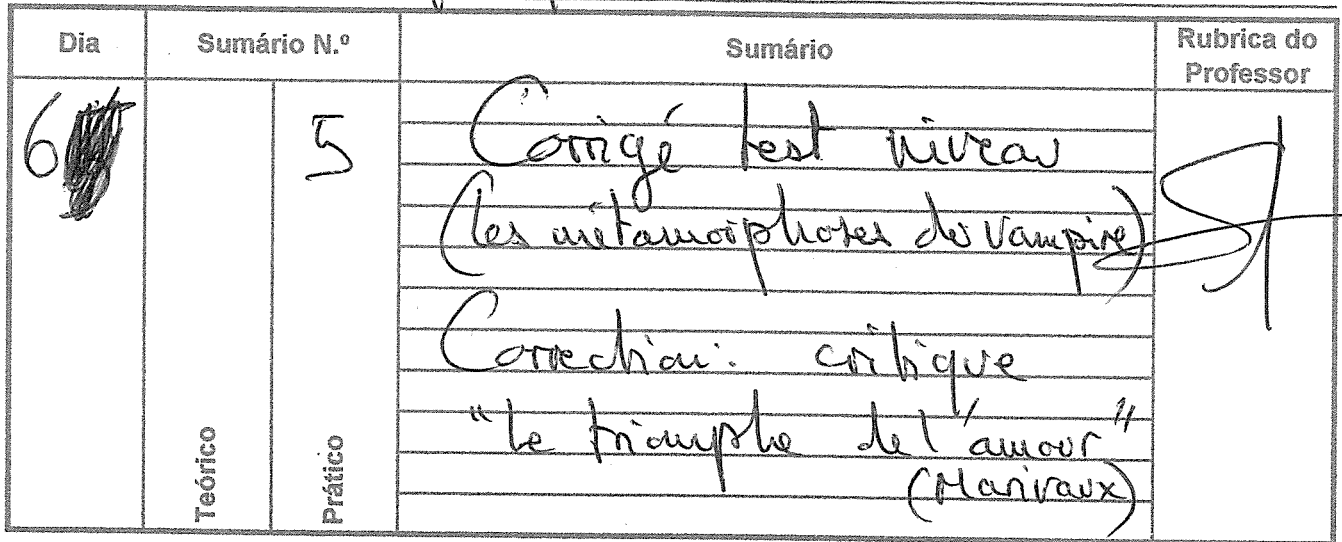 Dia Sumário N.º Sumário Rubrica do Professor
6 5
Teórico Prático
Corrigé test niveau
(les métamorphoses du Vampire)
Correction: critique
"Le triomphe de l'amour"
(Marivaux)